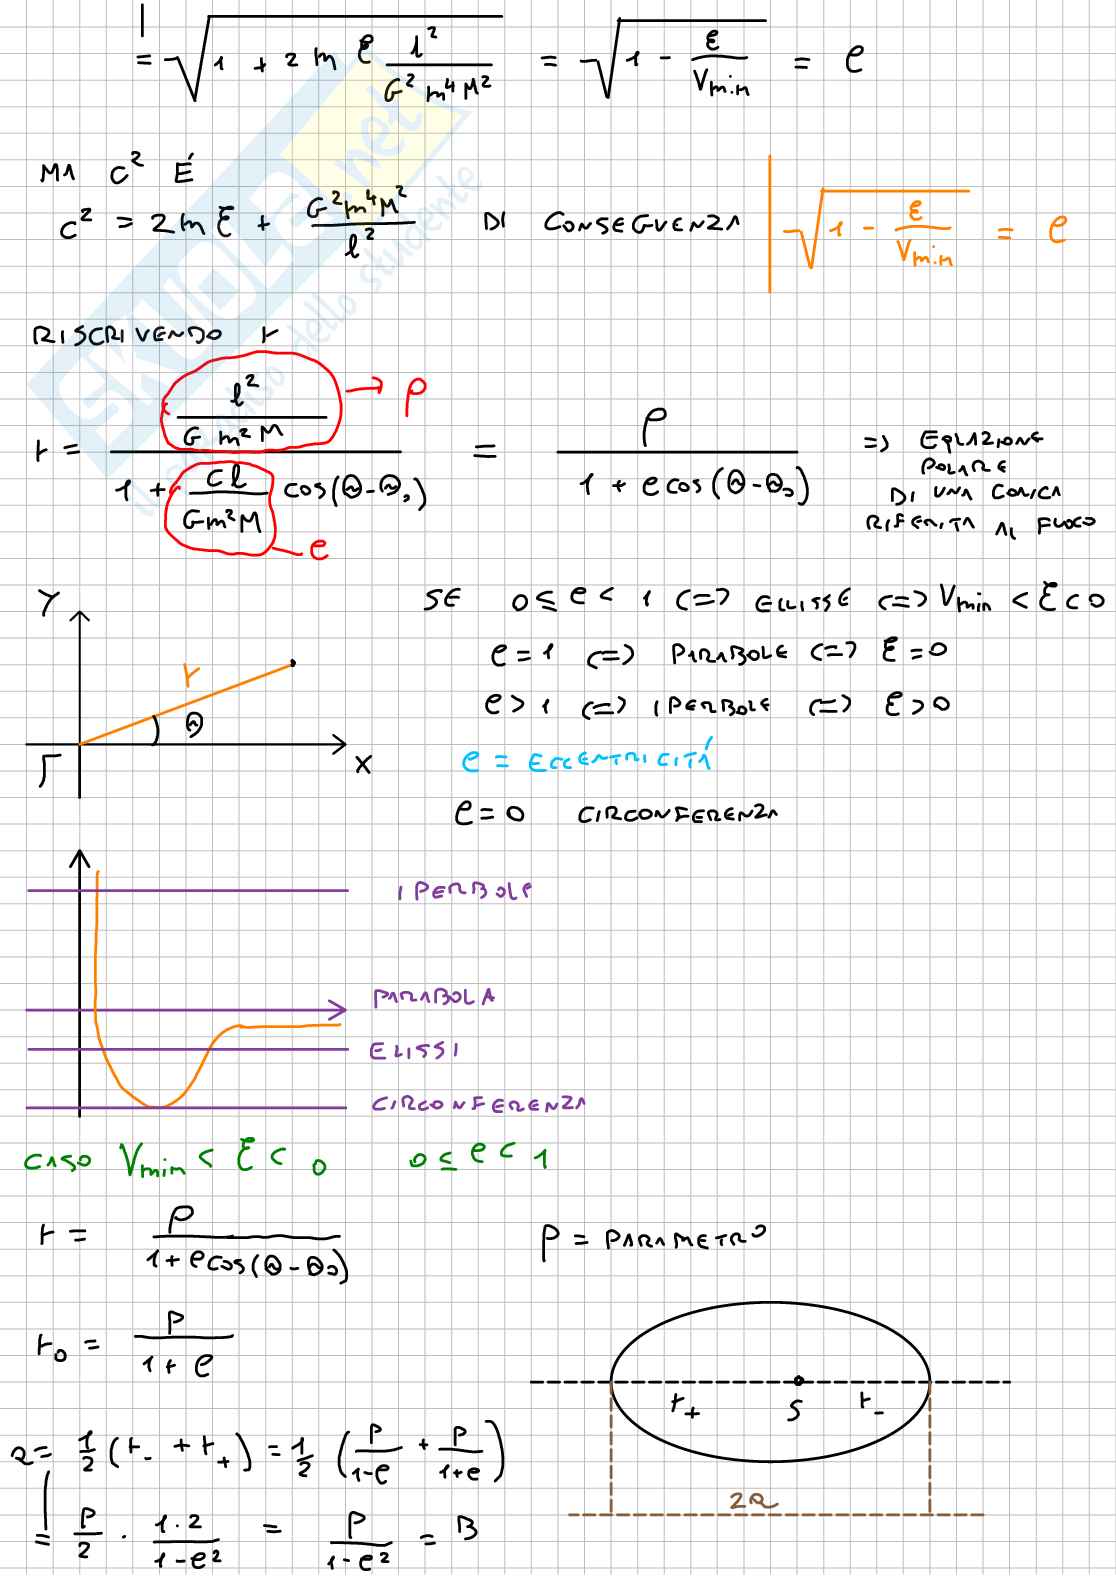 = √(1 + 2m ℰ l²/(G²m⁴M²)) = √(1 - ε/Vmin) = e
MA c² É
c² = 2mℰ + G²m⁴M²/l² DI CONSEGUENZA √(1 - ε/Vmin) = e
RISCRIVENDO r
r = (l²/(G m² M)) / (1 + (cl/(Gm²M)) cos(θ-θ₀)) = ρ / (1 + e cos(θ-θ₀)) => EQUAZIONE POLARE DI UNA CONICA RIFERITA AL FUOCO
→ ρ
e
SE 0 ≤ e < 1 <=> ELLISSE <=> Vmin < ℰ < 0
e = 1 <=> PARABOLE <=> ℰ = 0
e > 1 <=> IPERBOLE <=> ℰ > 0
e = ECCENTRICITÁ
e = 0 CIRCONFERENZA
Y
r
θ
Γ X
IPERBOLE
PARABOLA
ELISSI
CIRCONFERENZA
CASO Vmin < ℰ < 0 0 ≤ e < 1
r = ρ / (1 + e cos(θ-θ₀)) P = PARAMETRO
r₀ = P / (1 + e)
r₊ S r₋
2a
a = 1/2 (r₋ + r₊) = 1/2 (P/(1-e) + P/(1+e))
= P/2 · 1·2/(1-e²) = P/(1-e²) = B
SKUOLA.net
dello studente